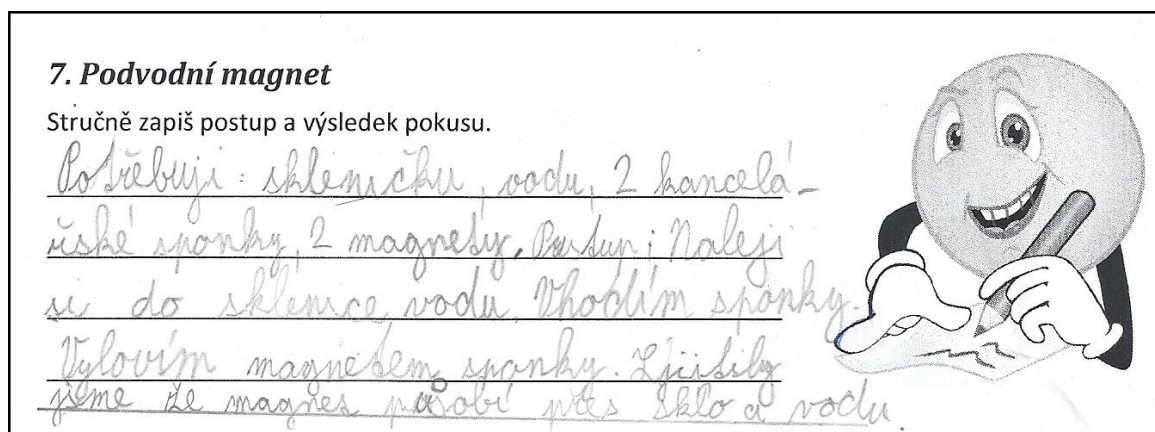 7. Podvodní magnet
Stručně zapiš postup a výsledek pokusu.
Potřebuji : skleničku, vodu, 2 kancelá-
řské sponky, 2 magnety. Postup : Naleji
si do sklenice vodu. Vhodím sponky.
Vylovím magnetem sponky. Zjistily
jsme že magnet působí přes sklo a vodu.